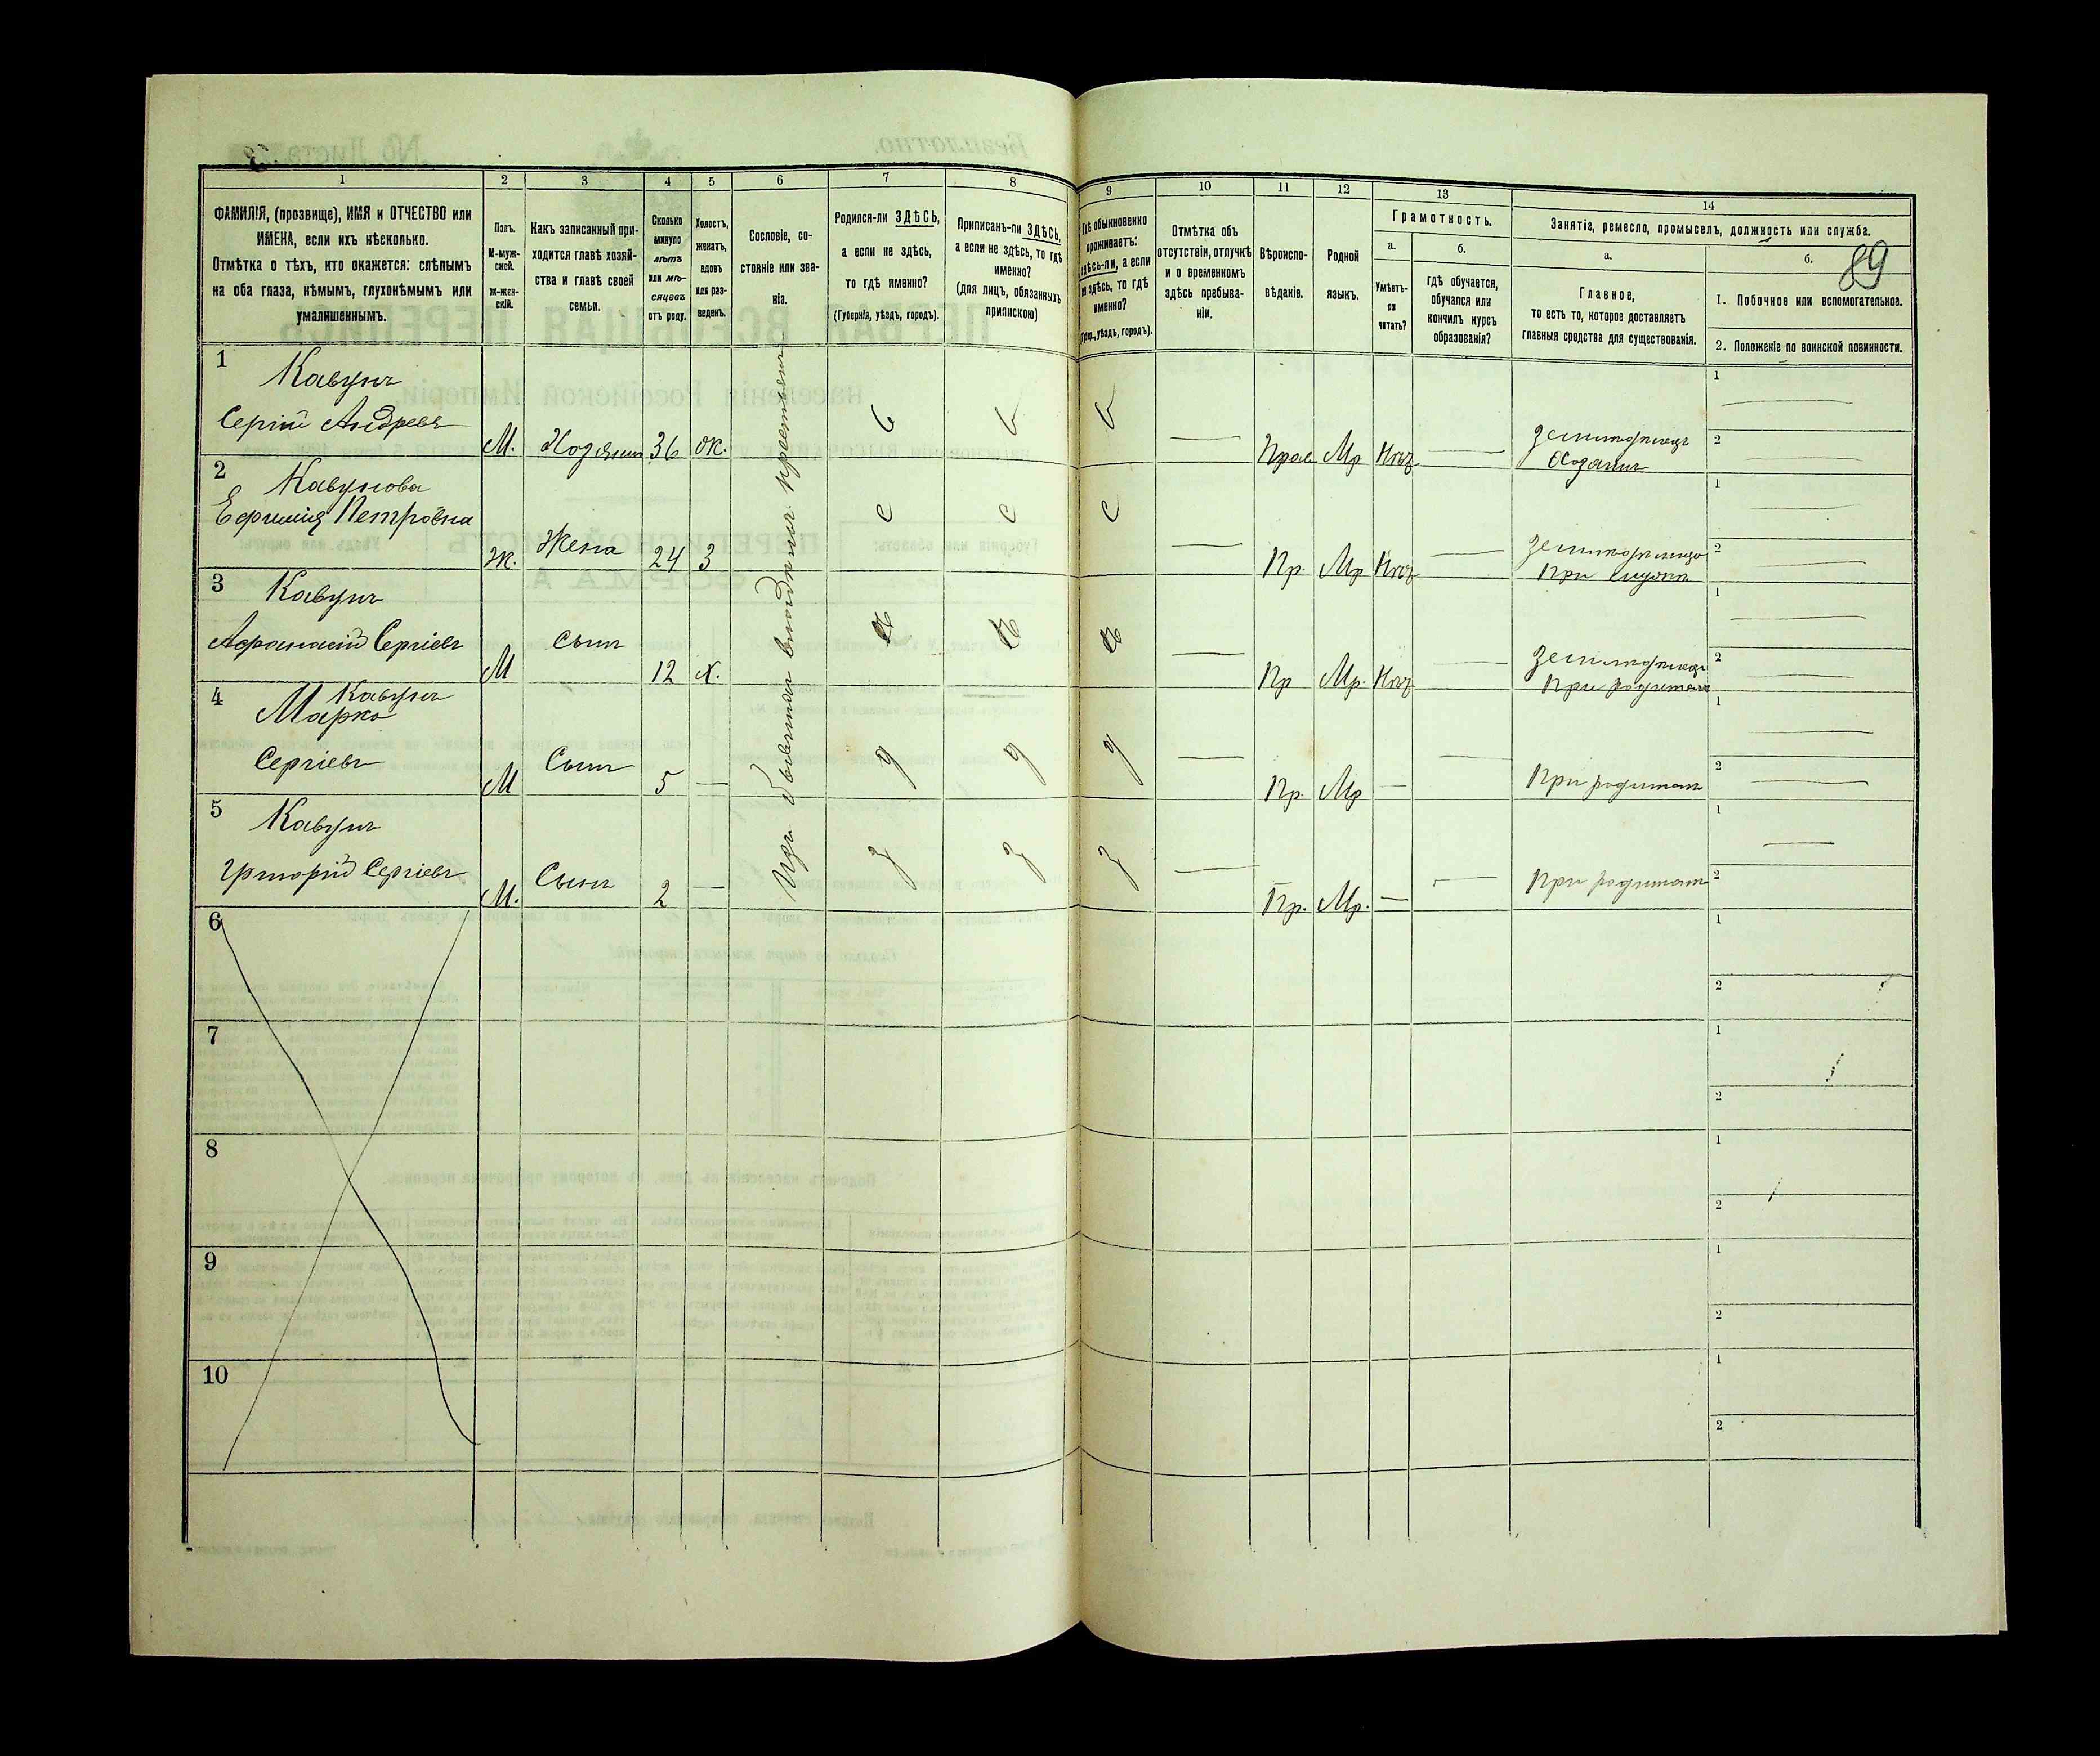 89
1 2 3 4 5 6 7 8 9 10 11 12 13 14
ФАМИЛІЯ, (прозвище), ИМЯ и ОТЧЕСТВО или
ИМЕНА, если ихъ нѣсколько.
Отмѣтка о тѣхъ, кто окажется: слѣпымъ
на оба глаза, нѣмымъ, глухонѣмымъ или
умалишеннымъ.
Полъ.
М-муж-
ской.
Ж-жен-
скій.
Какъ записанный при-
ходится главѣ хозяй-
ства и главѣ своей
семьи.
Сколько
минуло
лѣтъ
или мѣ-
сяцевъ
отъ роду.
Холостъ,
женатъ,
вдовъ
или раз-
веденъ.
Сословіе, со-
стояніе или зва-
ніе.
Родился-ли ЗДѢСЬ,
а если не здѣсь,
то гдѣ именно?
(Губернія, уѣздъ, городъ).
Приписанъ-ли ЗДѢСЬ,
а если не здѣсь, то гдѣ
именно?
(для лицъ, обязанныхъ
припискою)
Гдѣ обыкновенно
проживаетъ:
здѣсь-ли, а если
не здѣсь, то гдѣ
именно?
уѣздъ, городъ).
Отмѣтка объ
отсутствіи, отлучкѣ
и о временномъ
здѣсь пребыва-
ніи.
Вѣроиспо-
вѣданіе.
Родной
языкъ.
Грамотность.
а.
Умѣетъ-
ли
читать?
б.
Гдѣ обучается,
обучался или
кончилъ курсъ
образованія?
Занятіе, ремесло, промыселъ, должность или служба.
а.
Главное,
то есть то, которое доставляетъ
главныя средства для существованія.
б.
1. Побочное или вспомогательное.
2. Положеніе по воинской повинности.
Изъ бывшихъ владѣльч. крестьянъ
1 Кавунъ
Сергій Андреевъ М. Хозяинъ 36 Ж. Прав Мр Нѣтъ Земледѣлецъ
Хозяинъ
2 Кавунова
Ефимія Петровна Ж. Жена 24 З Пр. Мр Нѣтъ
При мужѣ
3 Кавунъ
Афанасій Сергіевъ М Сынъ 12 Х. Пр Мр. Нѣтъ
4 Кавунъ
Марко
Сергіевъ М Сынъ 5 — Пр. Мр — При родител
5 Кавунъ
Григорій Сергіевъ М. Сынъ 2 — Пр. Мр. — При родител
6
7
8
9
10